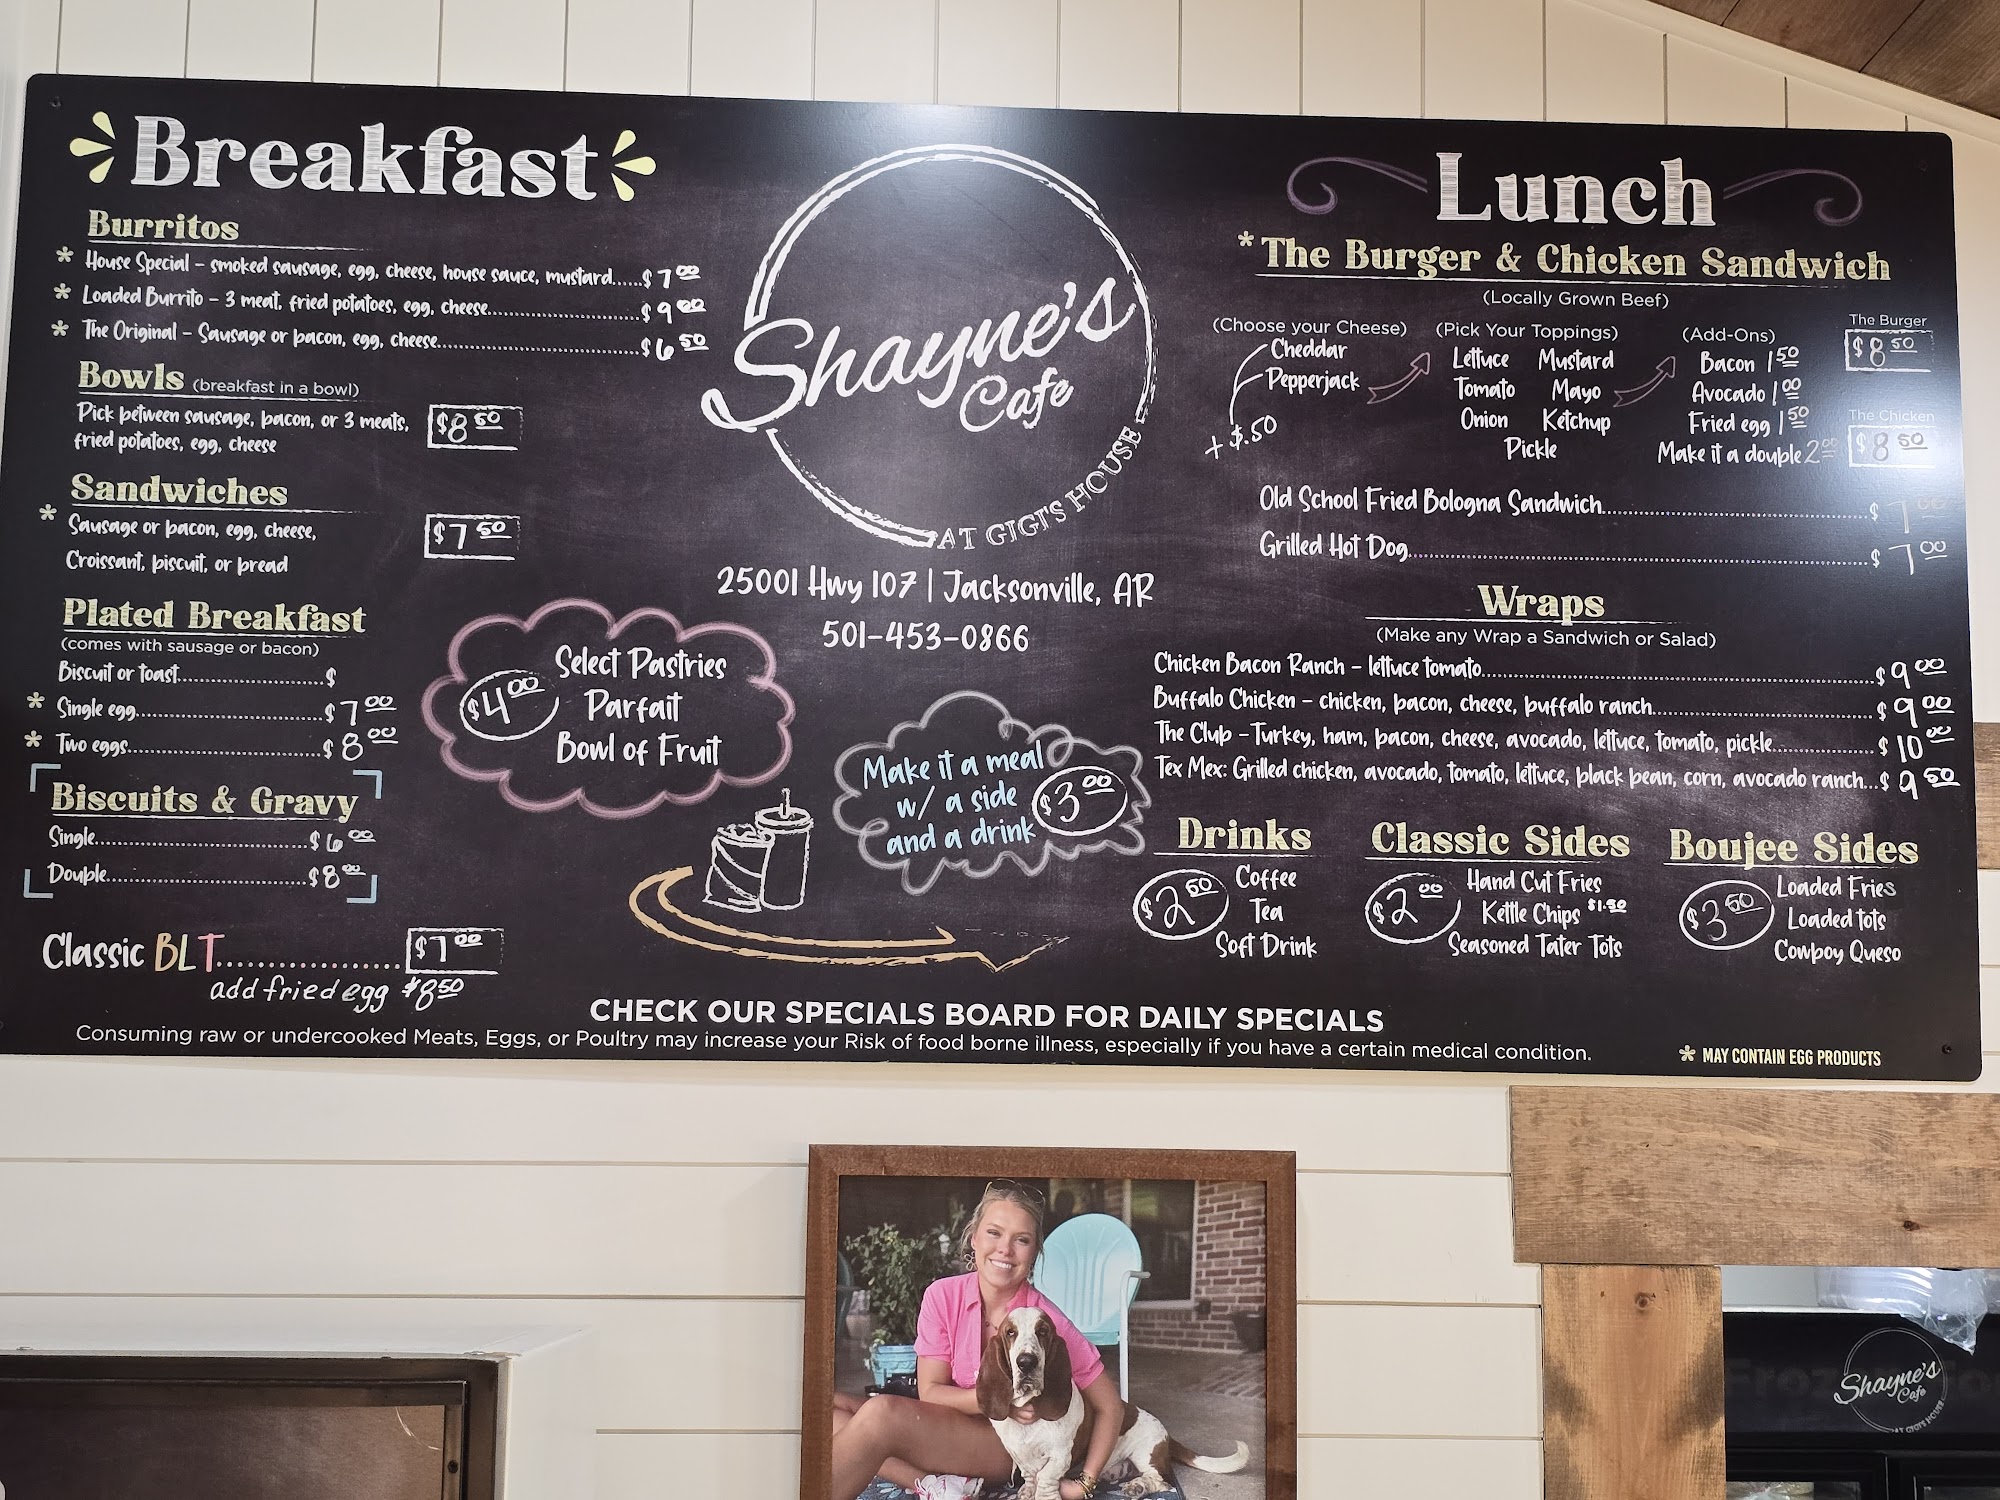 Breakfast
Burritos
* House Special – smoked sausage, egg, cheese, house sauce, mustard......$ 7 00
* Loaded Burrito – 3 meat, fried potatoes, egg, cheese..............................$ 9 00
* The Original – Sausage or bacon, egg, cheese........................................$ 6 50
Bowls (breakfast in a bowl)
Pick between sausage, bacon, or 3 meats, $8 50
fried potatoes, egg, cheese
Sandwiches
* Sausage or bacon, egg, cheese, $7 50
Croissant, biscuit, or bread
Plated Breakfast
(comes with sausage or bacon)
Biscuit or toast............................$
* Single egg....................................$ 7 00
* Two eggs.....................................$ 8 00
Biscuits & Gravy
Single..........................................$ 6 00
Double.......................................$ 8 00
Classic BLT.................... $7 00
add fried egg $8 50
Shayne's
Cafe
AT GIGI'S HOUSE
25001 Hwy 107 | Jacksonville, AR
501-453-0866
$4 00
Select Pastries
Parfait
Bowl of Fruit
Make it a meal
w/ a side
and a drink
$3 00
Lunch
* The Burger & Chicken Sandwich
(Locally Grown Beef)
(Choose your Cheese)
Cheddar
Pepperjack
+ $.50
(Pick Your Toppings)
Lettuce Mustard
Tomato Mayo
Onion Ketchup
Pickle
(Add-Ons)
Bacon 1 50
Avocado 1 00
Fried egg 1 50
Make it a double 2 00
The Burger
$8 50
The Chicken
$8 50
Old School Fried Bologna Sandwich..................................................$ 7 00
Grilled Hot Dog..................................................................................$ 7 00
Wraps
(Make any Wrap a Sandwich or Salad)
Chicken Bacon Ranch – lettuce tomato......................................................................$ 9 00
Buffalo Chicken – chicken, bacon, cheese, buffalo ranch........................................$ 9 00
The Club – Turkey, ham, bacon, cheese, avocado, lettuce, tomato, pickle..................$ 10 00
Tex Mex: Grilled chicken, avocado, tomato, lettuce, black bean, corn, avocado ranch...$ 9 50
Drinks
$2 50
Coffee
Tea
Soft Drink
Classic Sides
$2 00
Hand Cut Fries
Kettle Chips $1.50
Seasoned Tater Tots
Boujee Sides
$3 50
Loaded Fries
Loaded tots
Cowboy Queso
CHECK OUR SPECIALS BOARD FOR DAILY SPECIALS
Consuming raw or undercooked Meats, Eggs, or Poultry may increase your Risk of food borne illness, especially if you have a certain medical condition.
* MAY CONTAIN EGG PRODUCTS
Shayne's
Cafe
AT GIGI'S HOUSE